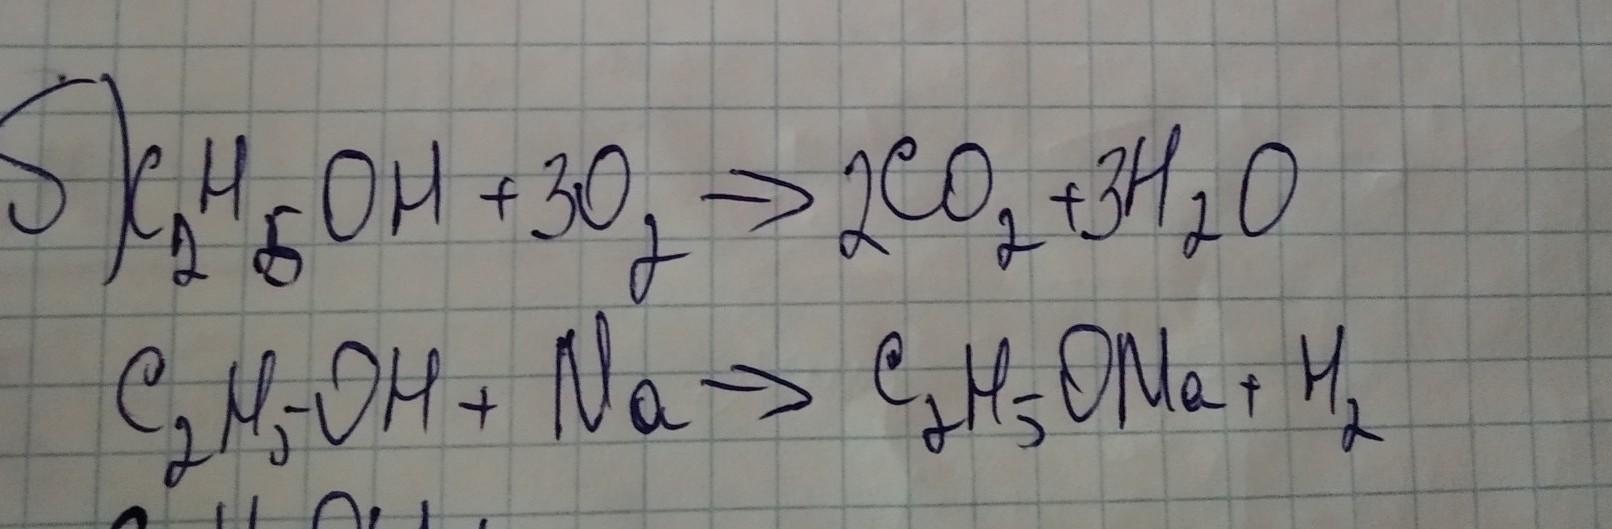 5) C₂H₅OH + 3O₂ => 2CO₂ + 3H₂O
C₂H₅-OH + Na => C₂H₅ONa + H₂